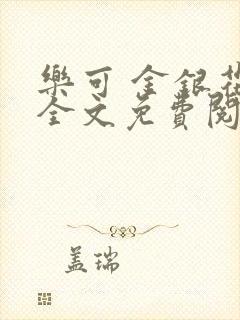 樂可 金銀花
全文免費閱
盖瑞